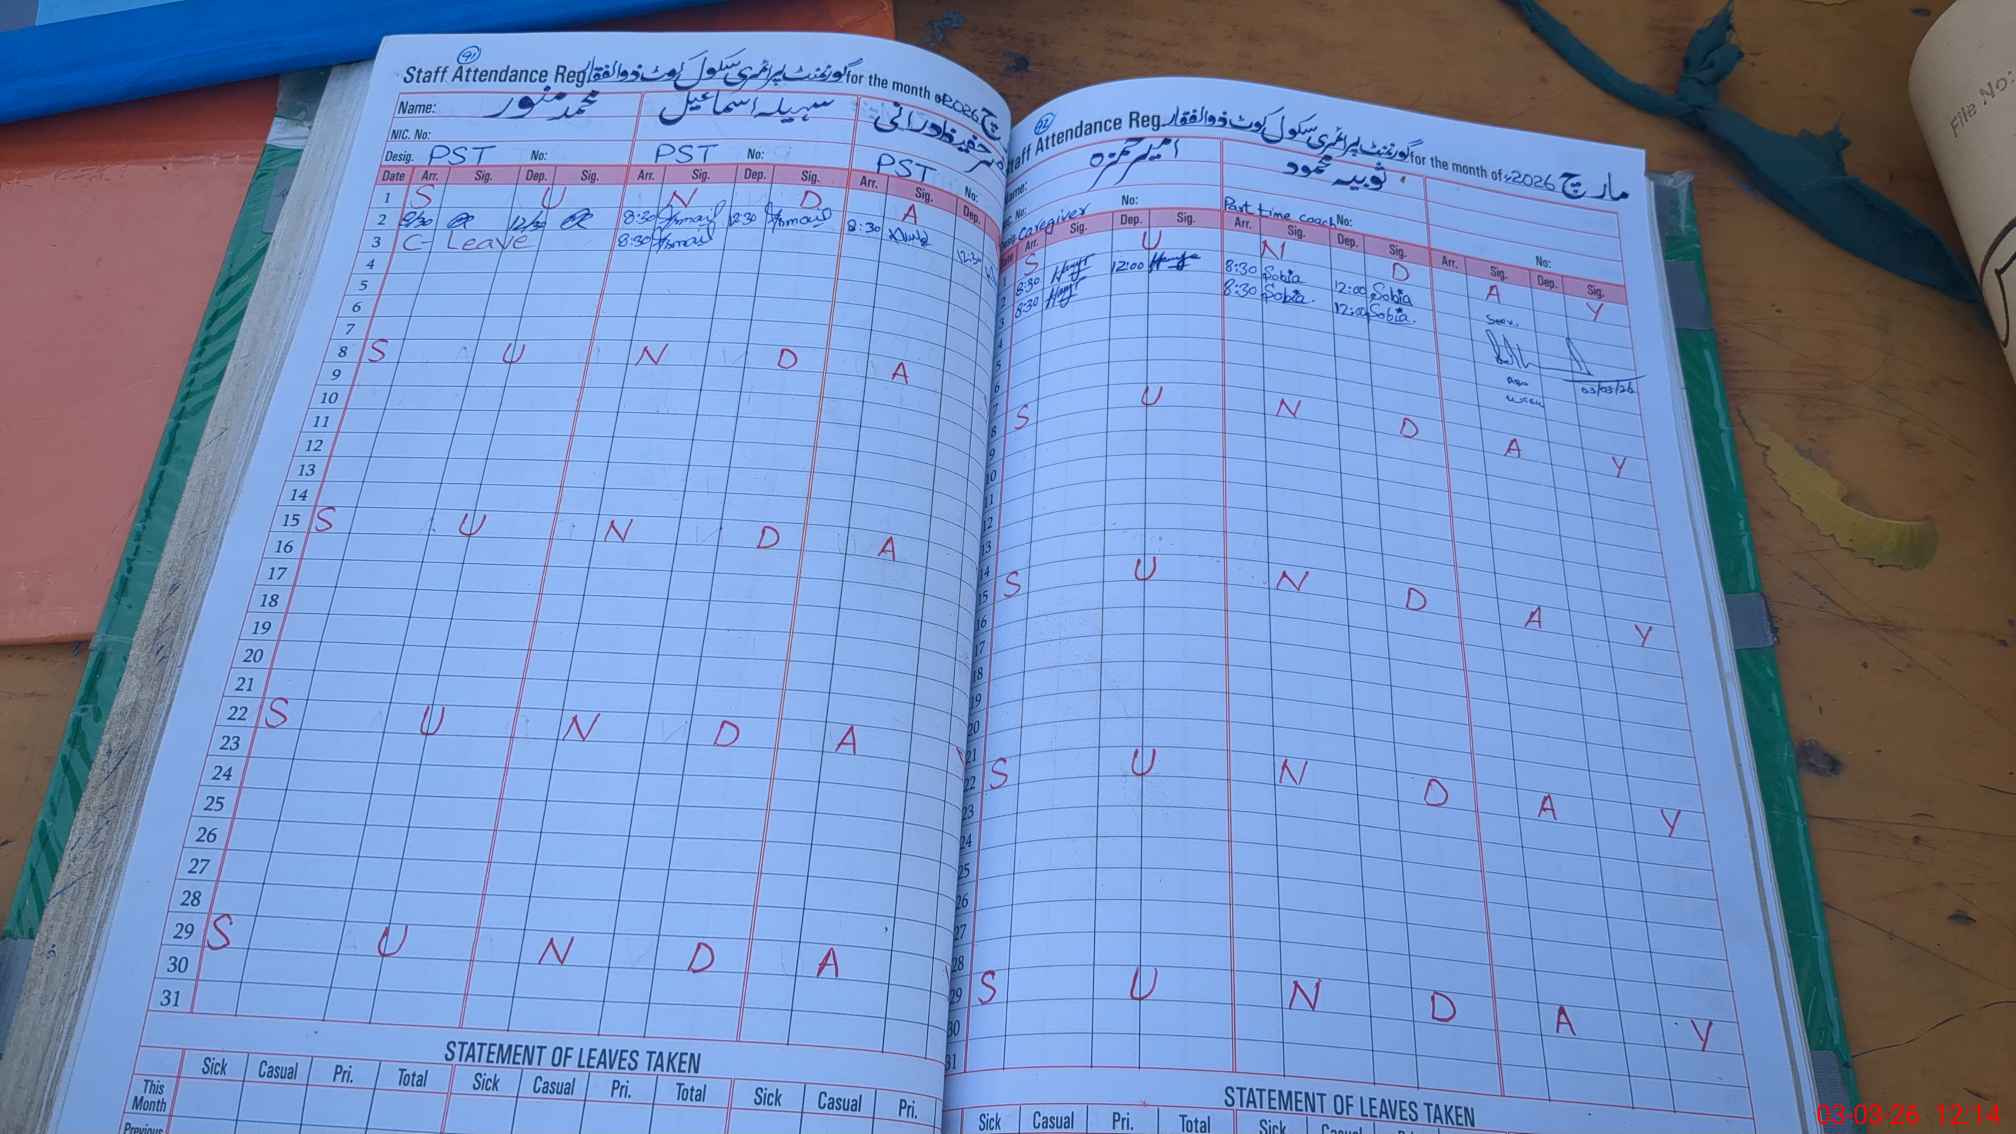 91
Staff Attendance Reg گورنمنٹ پرائمری سکول کوٹ ذوالفقار for the month of 2026 مارچ
Name: محمد منور سہیلہ اسماعیل
NIC. No:
Desig. PST No: PST No: PST No:
Date Arr. Sig. Dep. Sig. Arr. Sig. Dep. Sig. Arr. Sig. Dep.
1 S U N D A
2 8/30 12/30 8:30 Ismail 12:30 Ismail 8:30 12:30
3 C- Leave 8:30 Ismail
4
5
6
7
8 S U N D A
9
10
11
12
13
14
15 S U N D A
16
17
18
19
20
21
22 S U N D A
23
24
25
26
27
28
29 S U N D A
30
31
STATEMENT OF LEAVES TAKEN
Sick Casual Pri. Total Sick Casual Pri. Total Sick Casual Pri.
This Month
Previous
92
Staff Attendance Reg گورنمنٹ پرائمری سکول کوٹ ذوالفقار for the month of 2026 مارچ
Name: امیر حمزہ ثوبیہ محمود
NIC. No:
Caregiver No: Part time coach No: No:
Arr. Sig. Dep. Sig. Arr. Sig. Dep. Sig. Arr. Sig. Dep. Sig.
1 S U N D A Y
2 8:30 12:00 8:30 Sobia 12:00 Sobia
3 8:30 8:30 Sobia. 12:00 Sobia.
4
5
03/03/26
6
7
8 S U N D A Y
9
10
11
12
13
14
15 S U N D A Y
16
17
18
19
20
21
22 S U N D A Y
23
24
25
26
27
28
29 S U N D A Y
30
31
STATEMENT OF LEAVES TAKEN
Sick Casual Pri. Total Sick
File No:
03-03-26 12:14